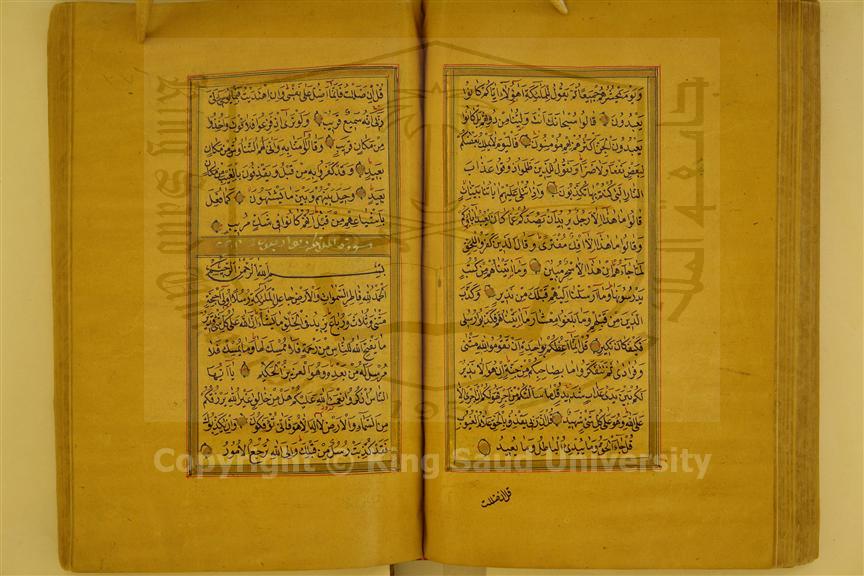 ويوم نحشرهم جميعا ثم يقول للملئكة اهؤلاء اياكم كانوا
يعبدون قالوا سبحانك انت ولينا من دونهم بل كانوا
يعبدون الجن اكثرهم بهم مؤمنون فاليوم لا يملك بعضكم
لبعض نفعا ولا ضرا ونقول للذين ظلموا ذوقوا عذاب
النار التي كنتم بها تكذبون واذا تتلى عليهم اياتنا بينات
قالوا ما هذا الا رجل يريد ان يصدكم عما كان يعبد اباؤكم
وقالوا ما هذا الا افك مفترى وقال الذين كفروا للحق
لما جاءهم ان هذا الا سحر مبين وما اتيناهم من كتب
يدرسونها وما ارسلنا اليهم قبلك من نذير وكذب
الذين من قبلهم وما بلغوا معشار ما اتيناهم فكذبوا رسلي
فكيف كان نكير قل انما اعظكم بواحدة ان تقوموا لله مثنى
وفرادى ثم تتفكروا ما بصاحبكم من جنة ان هو الا نذير
لكم بين يدي عذاب شديد قل ما سالتكم من اجر فهو لكم ان اجري الا
على الله وهو على كل شيء شهيد قل ان ربي يقذف بالحق علام الغيوب
قل جاء الحق وما يبدئ الباطل وما يعيد
قل ان ضللت
قل ان ضللت فانما اضل على نفسي وان اهتديت فبما يوحي الي
ربي انه سميع قريب ولو ترى اذ فزعوا فلا فوت واخذوا
من مكان قريب وقالوا امنا به وانى لهم التناوش من مكان
بعيد وقد كفروا به من قبل ويقذفون بالغيب من مكان
بعيد وحيل بينهم وبين ما يشتهون كما فعل
باشياعهم من قبل انهم كانوا في شك مريب
سورة الملئكة
بسم الله الرحمن الرحيم
الحمد لله فاطر السموات والارض جاعل الملئكة رسلا اولي اجنحة
مثنى وثلاث ورباع يزيد في الخلق ما يشاء ان الله على كل شيء قدير
ما يفتح الله للناس من رحمة فلا ممسك لها وما يمسك فلا
مرسل له من بعده وهو العزيز الحكيم يا ايها
الناس اذكروا نعمت الله عليكم هل من خالق غير الله يرزقكم
من السماء والارض لا اله الا هو فانى تؤفكون وان يكذبوك
فقد كذبت رسل من قبلك والى الله ترجع الامور
Copyright © King Saud University